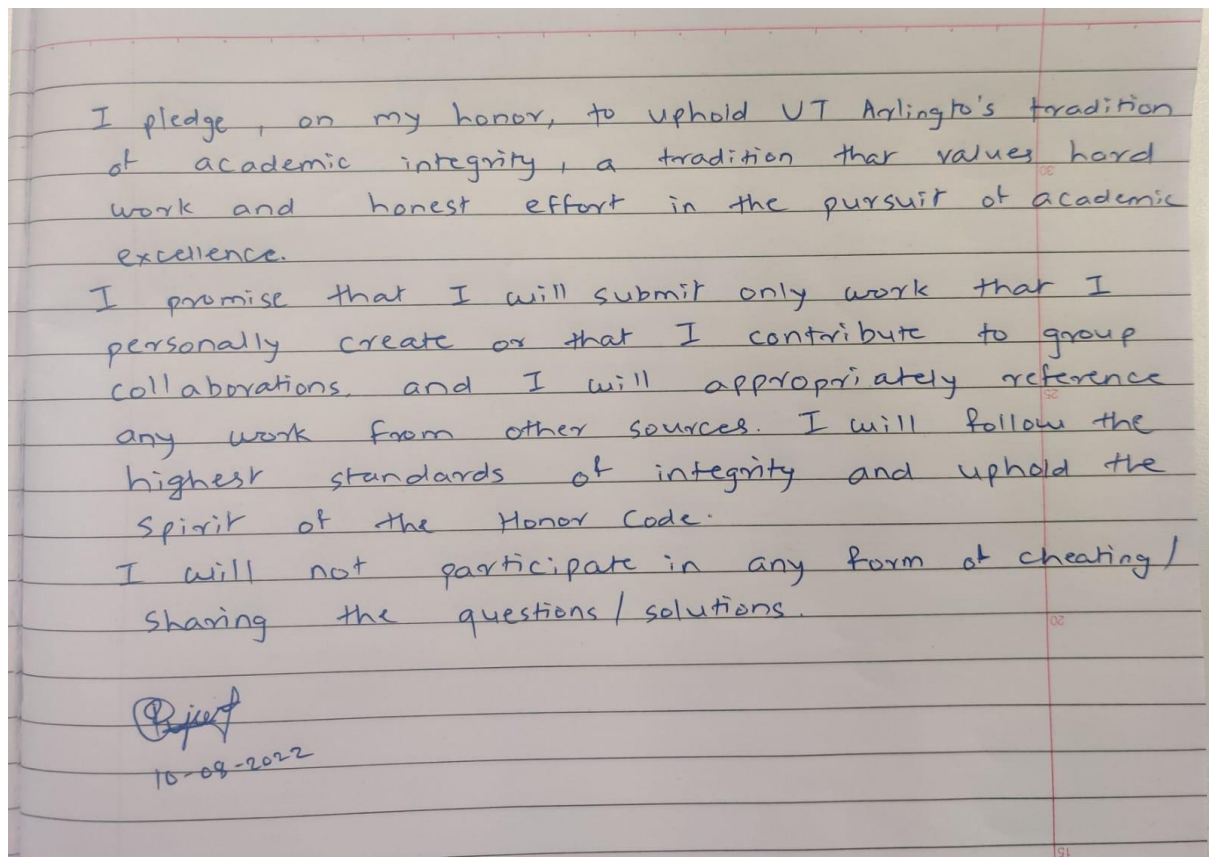 I pledge, on my honor, to uphold UT Arlingto's tradition
of academic integrity, a tradition that values hard
work and honest effort in the pursuit of academic
excellence.
I promise that I will submit only work that I
personally create or that I contribute to group
collaborations, and I will appropriately reference
any work from other sources. I will follow the
highest standards of integrity and uphold the
spirit of the Honor Code.
I will not participate in any form of cheating/
sharing the questions/solutions.
10-08-2022
30
25
20
15